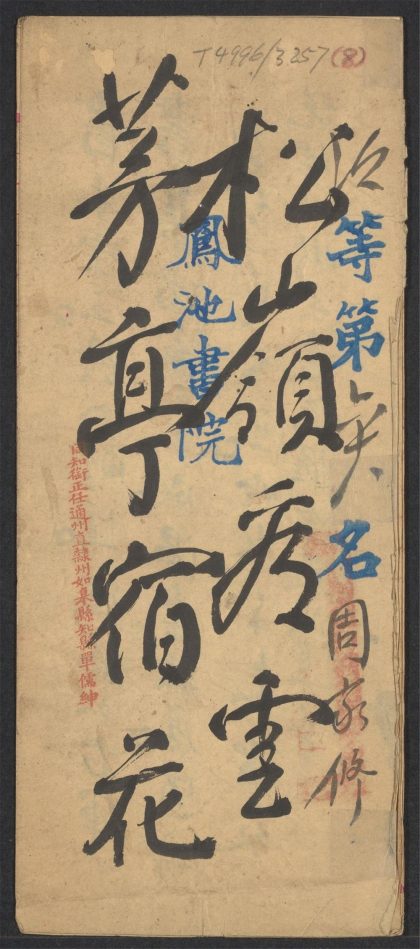 T4996/3257(8)
等第名周家修
松嶺秀雲
鳳池書院
芳亭宿花
同知銜正任通州直隸州如皋縣知縣單儒紳